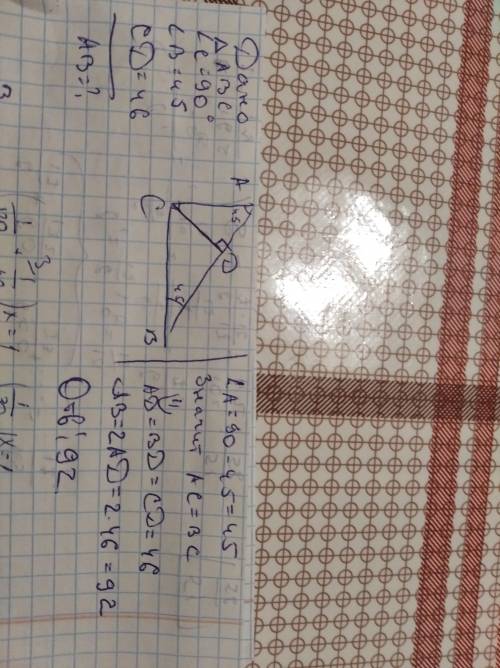 Дано
△ABC
∠C=90°
∠B=45
CD=46
AB=?
A
45
D
C
45
B
∠A=90=45=45
Значит AC=BC
AD=BD=CD=46
AB=2AD=2·46=92
Отв: 92